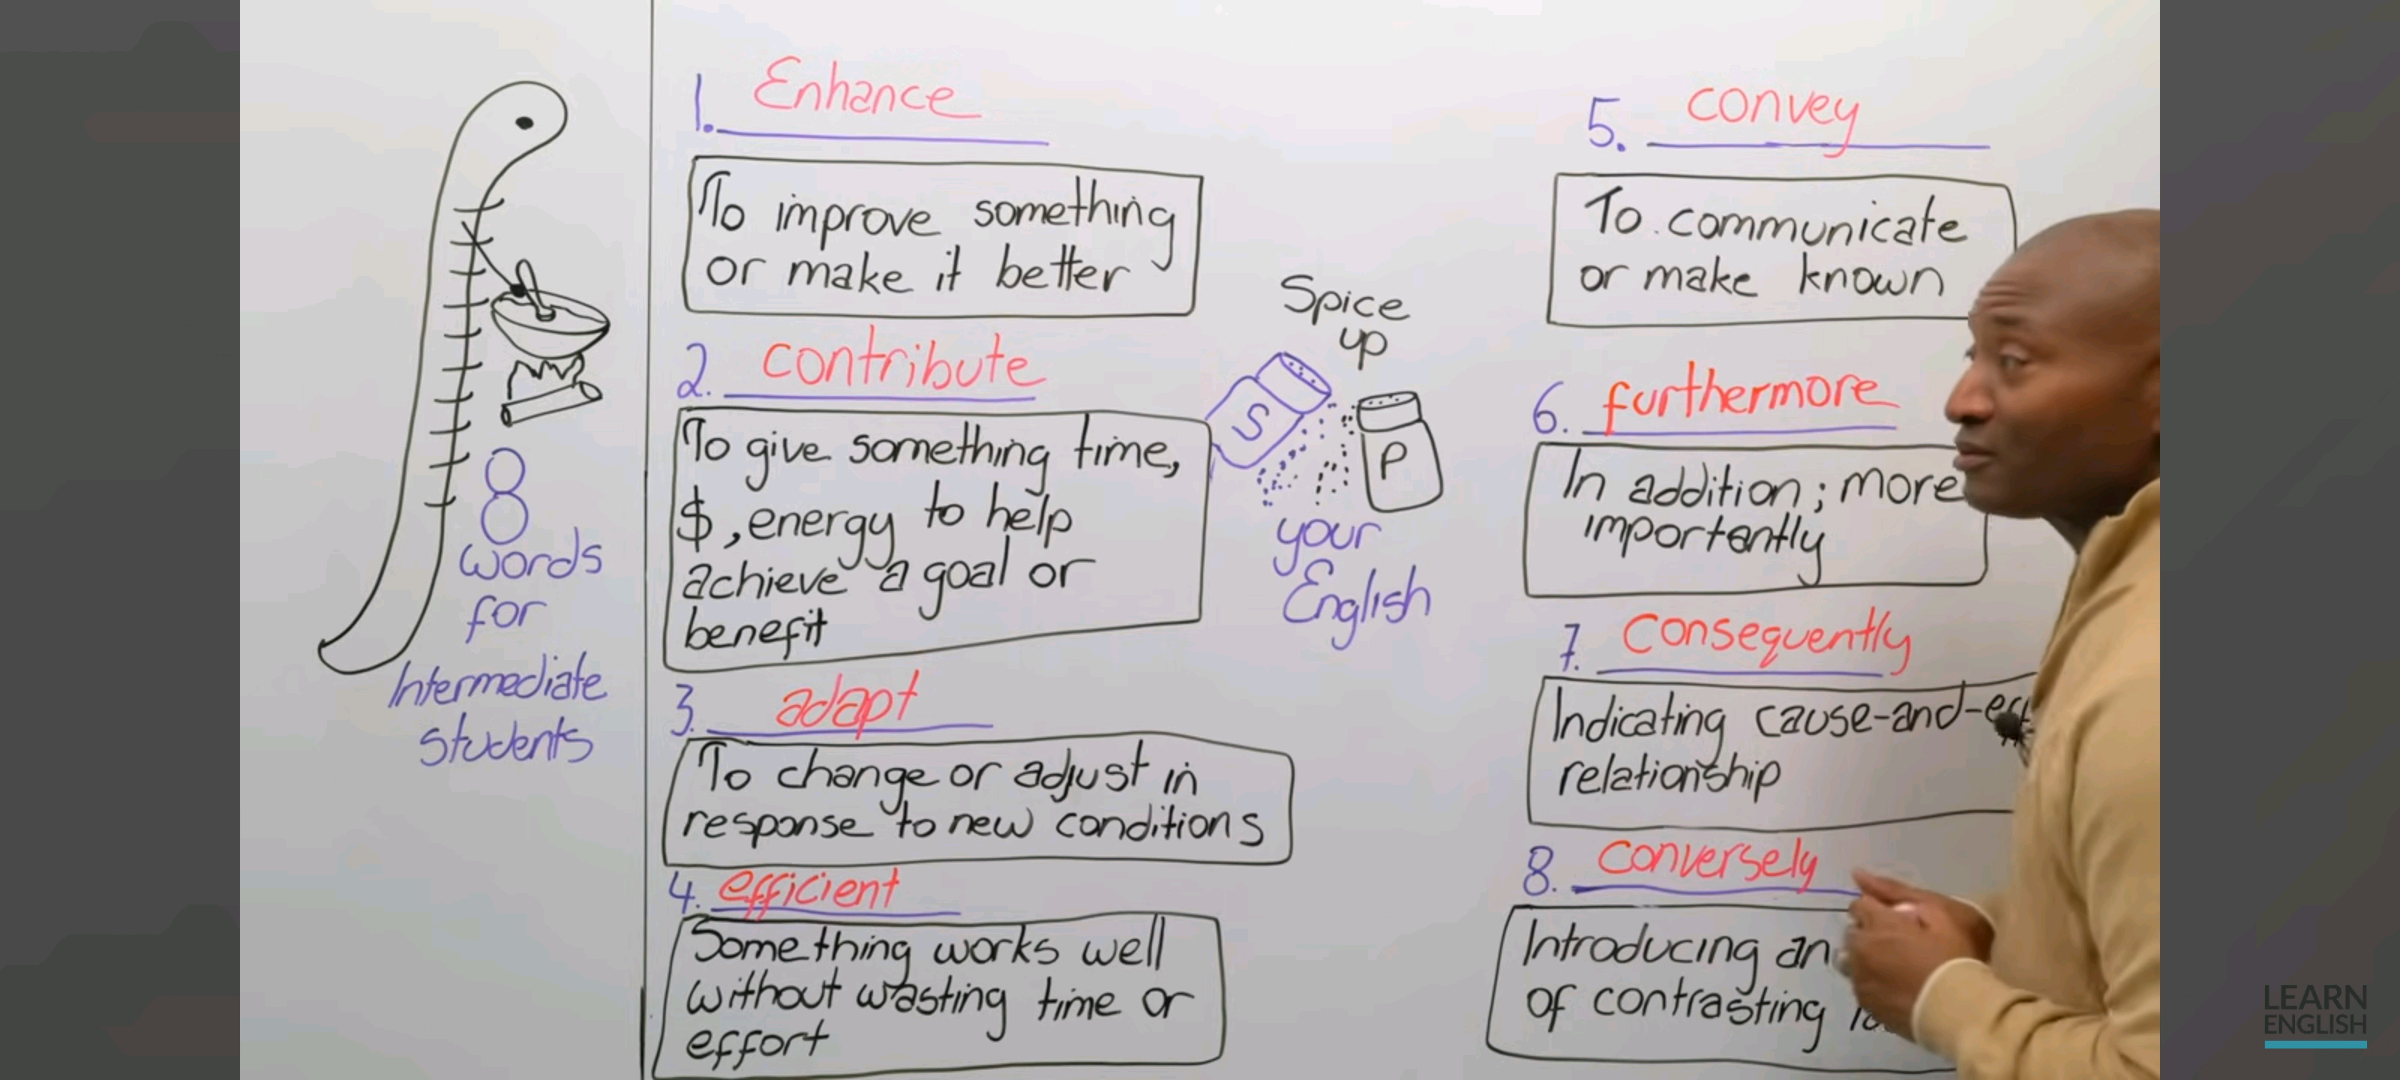 8
words
for
Intermediate
students
1. Enhance
To improve something
or make it better
2. contribute
To give something time,
$, energy to help
achieve a goal or
benefit
3. adapt
To change or adjust in
response to new conditions
4. efficient
Something works well
without wasting time or
effort
Spice
up
S
P
your
English
5. convey
To communicate
or make known
6. furthermore
In addition; more
importantly
7. Consequently
Indicating cause-and-
relationship
8. conversely
Introducing an
of contrasting
LEARN
ENGLISH